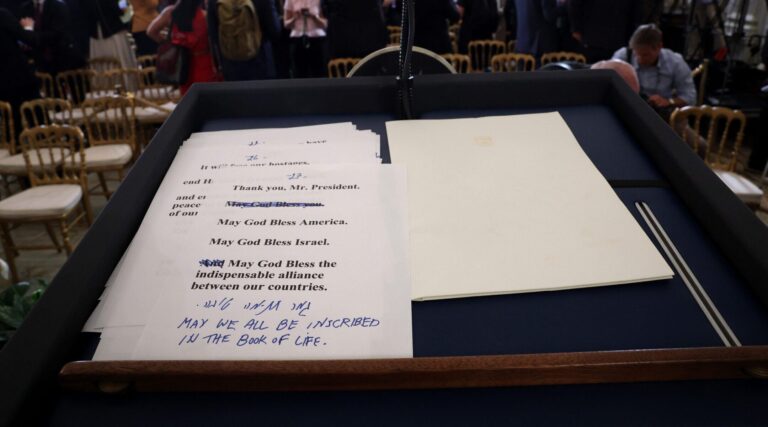 have
It our hostages,
end
and
peace
of our
Thank you, Mr. President.
May God Bless you.
May God Bless America.
May God Bless Israel.
May God Bless the
indispensable alliance
between our countries.
גמר חתימה טובה.
MAY WE ALL BE INSCRIBED
IN THE BOOK OF LIFE.